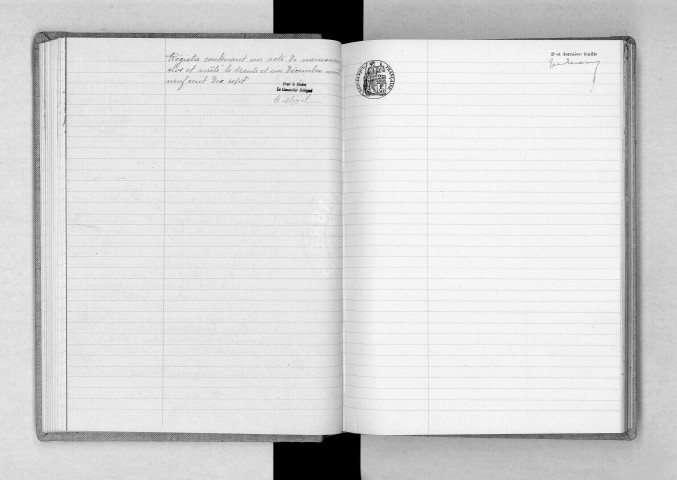 Registre contenant un acte de naissance
clos et arrêté le trente et un Décembre mil
neuf cent dix sept
Pour le Maire
Le Conseiller Délégué
2e et dernière feuille
RÉPUBLIQUE FRANÇAISE